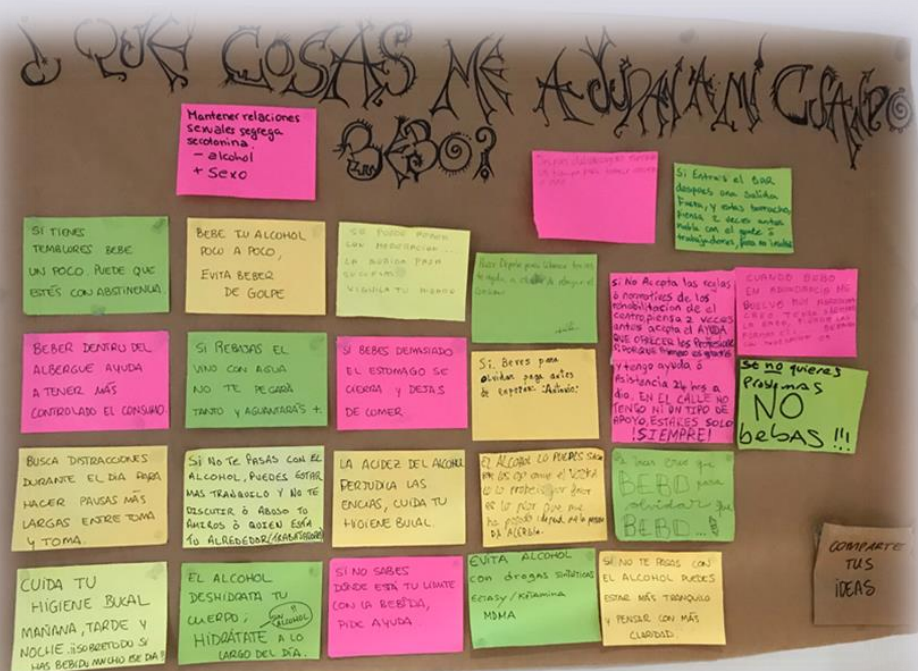 ¿ QUE COSAS ME AYUDAN A MI CUANDO
BEBO?
Mantener relaciones
sexuales segrega
serotonina.
- alcohol
+ sexo
Si Entras el BAR
despues una salida
fuerta, y estas borracho,
piensa 2 veces antes
habla con el gente ó
trabajadores,
SI TIENES
TEMBLORES BEBE
UN POCO, PUEDE QUE
ESTÉS CON ABSTINENCIA
BEBE TU ALCOHOL
POCO A POCO,
EVITA BEBER
DE GOLPE
SE PUEDE
CON MODERACIÓN...
LA BEBIDA PASA
VIGILA TU HIGADO
Si No Acepta las reglas
ó normativas de los
rehabilitacion de el
centro, piensa 2 veces
antes acepta el AYUDA
QUE OFRECER LOS
PORQUE es gratis
y tengo ayuda ó
Asistencia 24 hrs a
dia. EN EL CALLE NO
TENGO NI UN TIPO DE
APOYO, ESTARES SOLO
!SIEMPRE!
CUANDO BEBO
EN ABUNDANCIA ME
VUELVO MUY
BEBER DENTRO DEL
ALBERGUE AYUDA
A TENER MÁS
CONTROLADO EL CONSUMO.
SI REBAJAS EL
VINO CON AGUA
NO TE PEGARÁ
TANTO Y AGUANTARÁS +.
SI BEBES DEMASIADO
EL ESTOMAGO SE
CIERRA Y DEJAS
DE COMER.
Si. Beves para
olvidar paga antes
de empezar. "Antonio"
Se no quieres
Problemas
NO
bebas !!!
BUSCA DISTRACCIONES
DURANTE EL DÍA PARA
HACER PAUSAS MÁS
LARGAS ENTRE TOMA
Y TOMA.
SI NO TE PASAS CON EL
ALCOHOL, PUEDES ESTAR
MAS TRANQUILO Y NO TE
DISCUTIR Ó ABUSO TU
AMIGOS Ó QUIEN ESTA
TU ALREDEDOR (TRABAJADORES)
LA ACIDEZ DEL ALCOHOL
PERJUDICA LAS
ENCIAS, CUIDA TU
HIGIENE BUCAL.
EL ALCOHOL LO PUEDES
es lo peor que me
ha pasado
DA ALERGIA.
que
BEBO para
olvidar que
BEBO
COMPARTE
TUS
iDEAS
CUIDA TU
HIGIENE BUCAL
MAÑANA, TARDE Y
NOCHE. ¡¡SOBRETODO SI
HAS BEBIDO MUCHO ESE DIA!!
EL ALCOHOL
DESHIDRATA TU
CUERPO,
SIN ALCOHOL!!
HIDRÁTATE A LO
LARGO DEL DÍA.
SI NO SABES
DÓNDE ESTÁ TU LIMITE
CON LA BEBIDA,
PIDE AYUDA
EVITA ALCOHOL
con drogas sintéticas
Extasy / Ketamina
MDMA
SI NO TE PASAS CON
EL ALCOHOL PUEDES
ESTAR MÁS TRANQUILO
Y PENSAR CON MÁS
CLARIDAD.